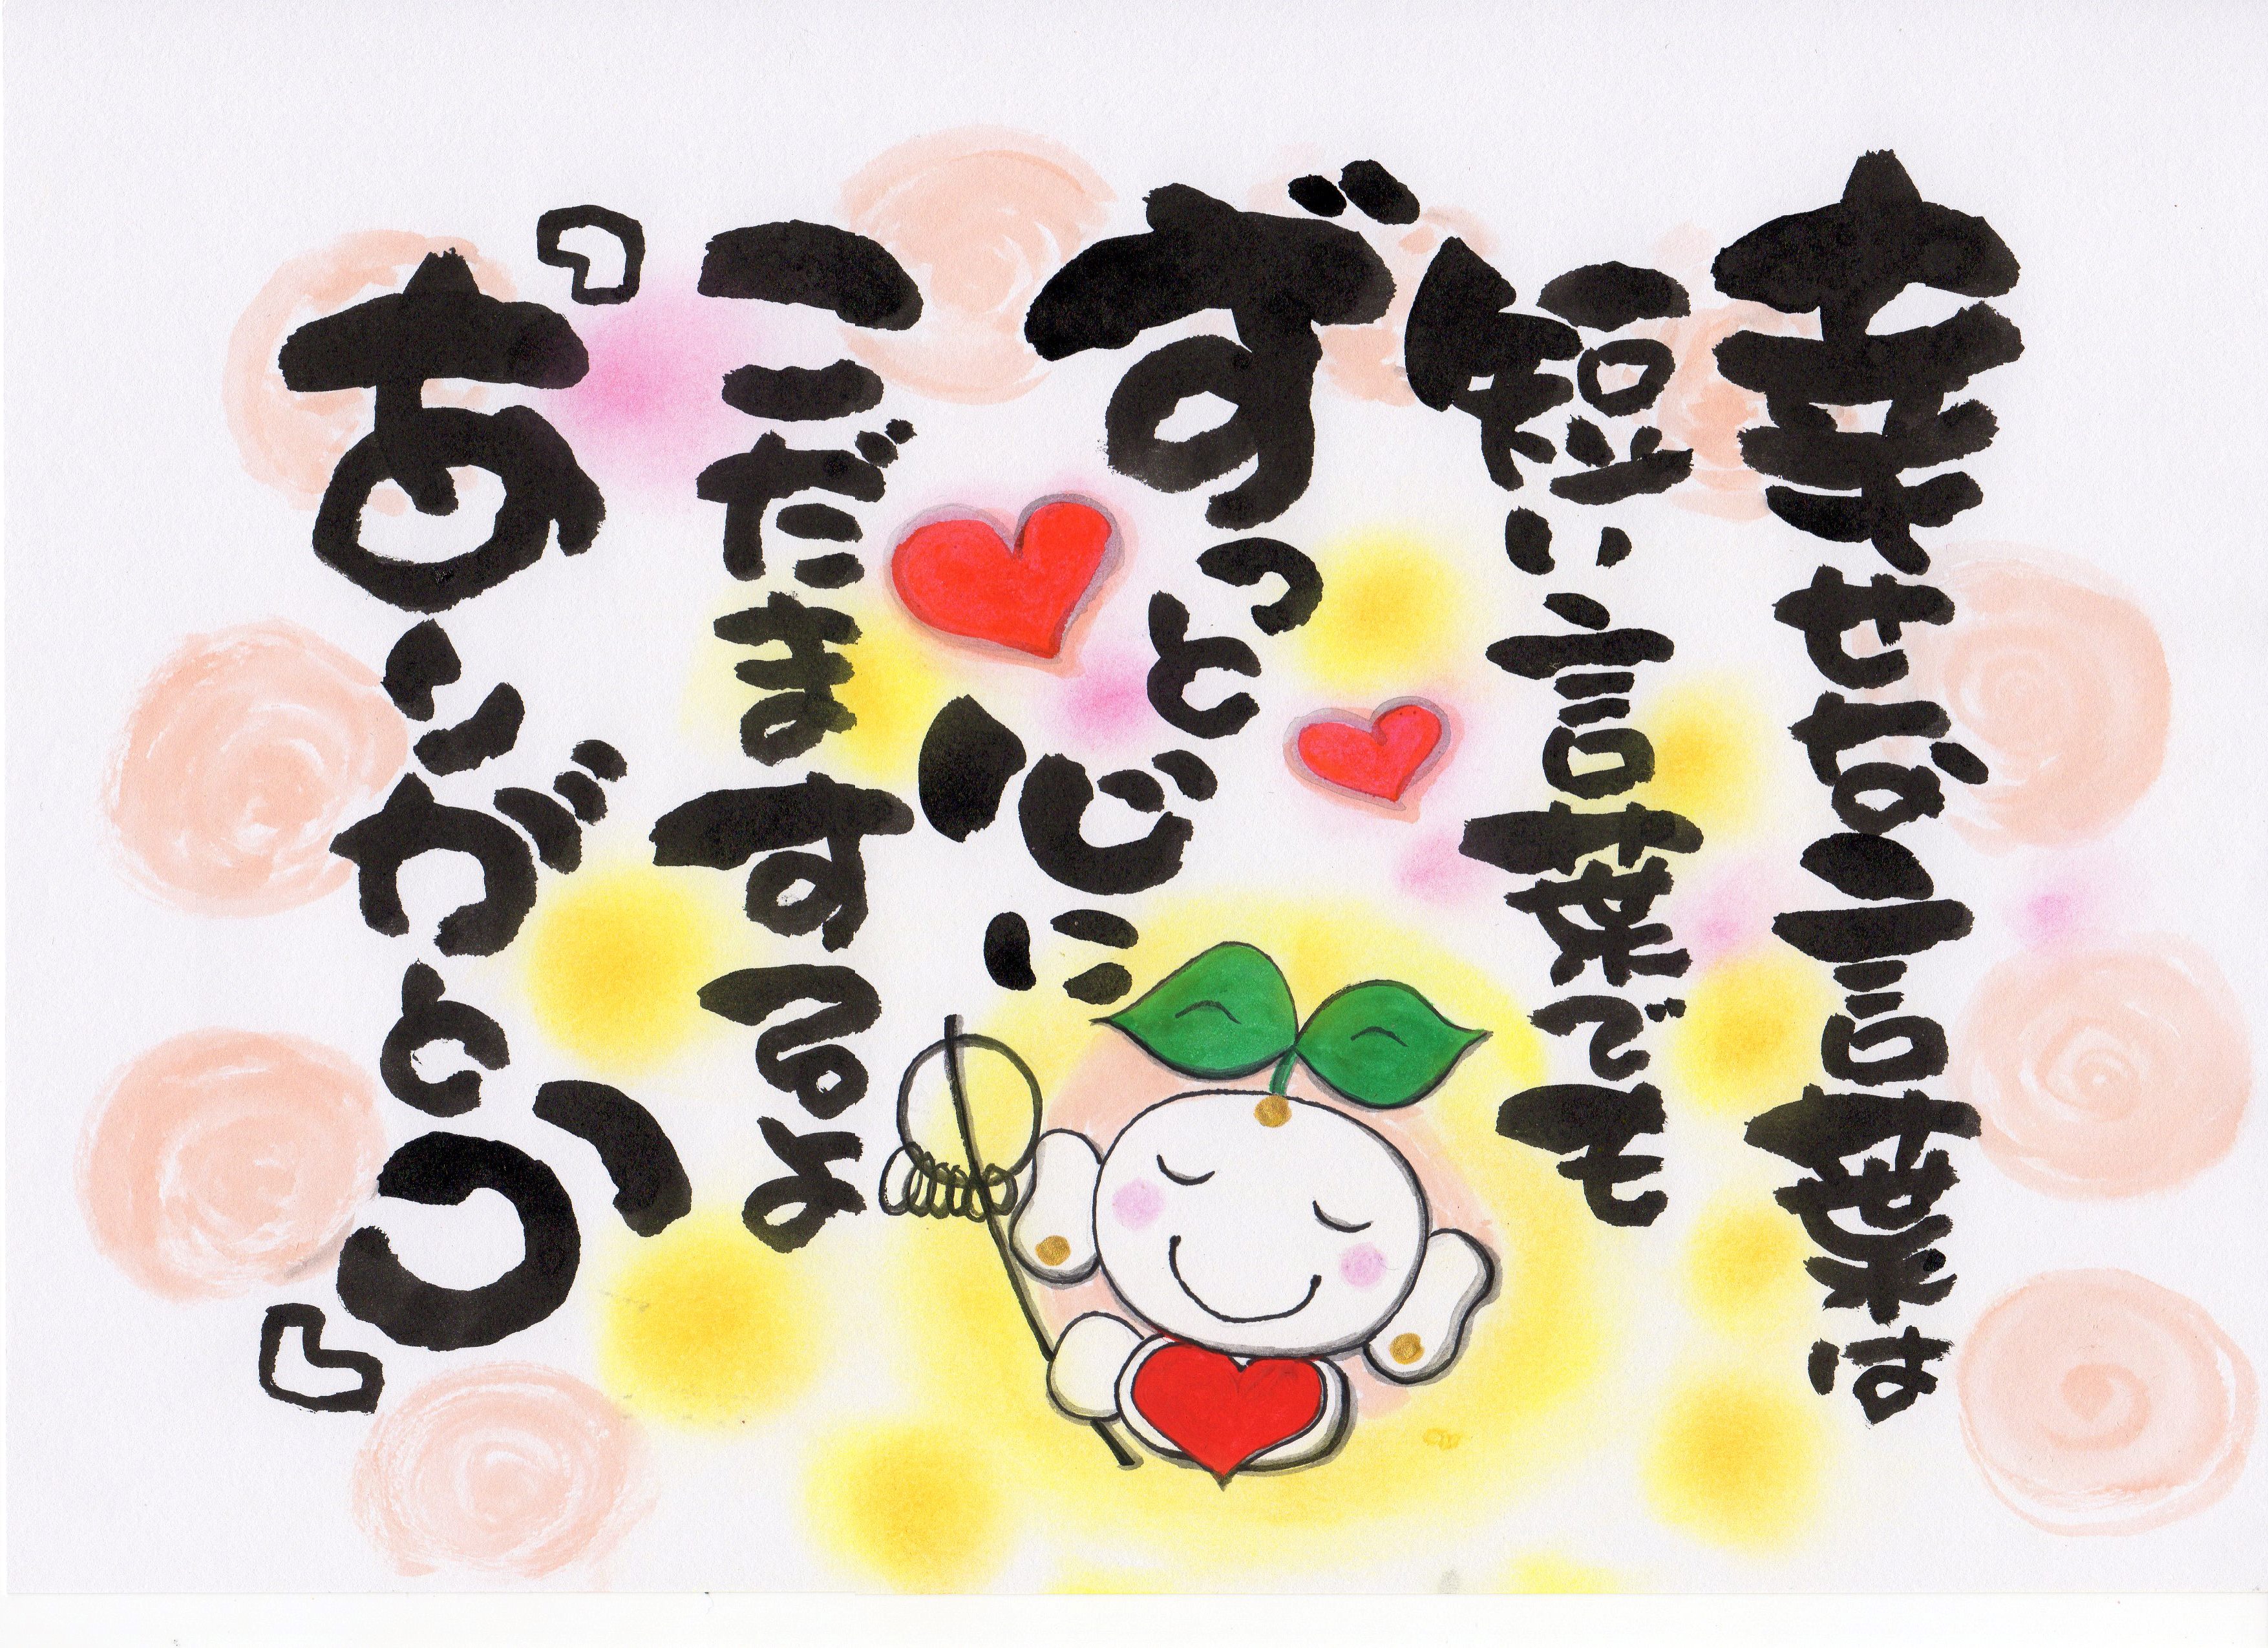 幸せな言葉は
短い言葉でも
ずっと心に
こだまするよ
『ありがとう』